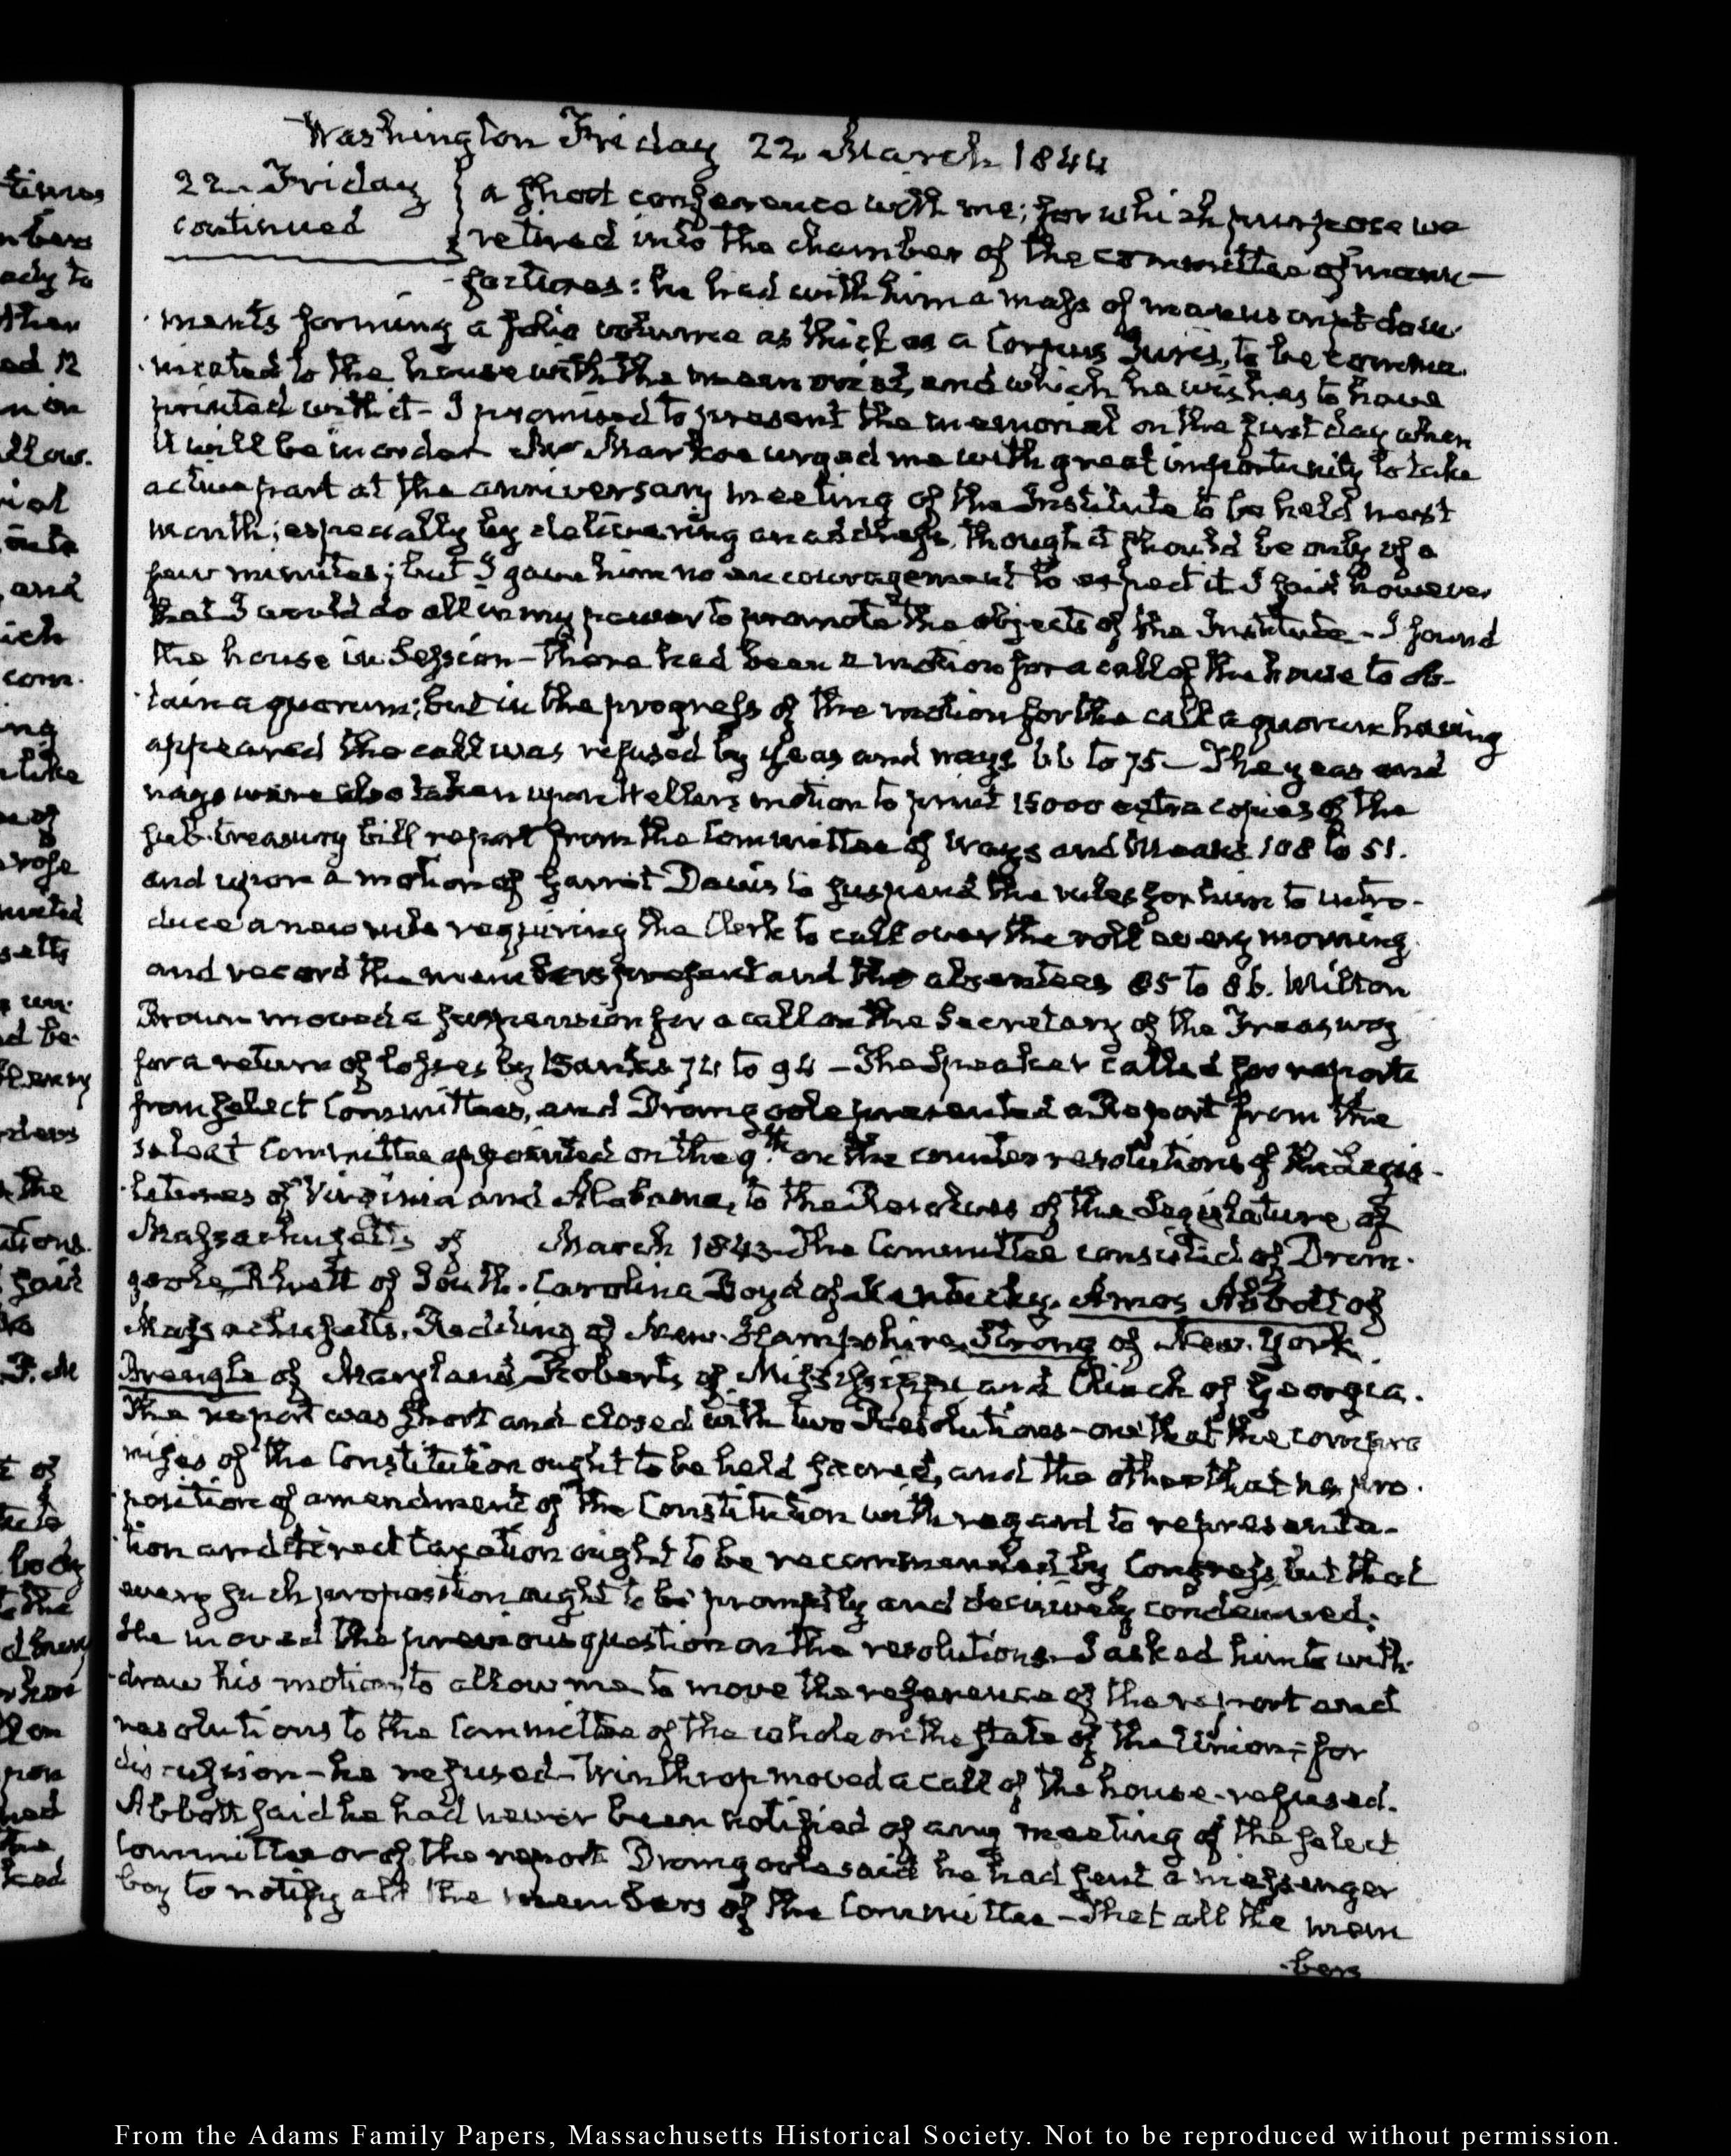 Washington Friday 22 March 1844
22. Friday continued
a short conference with me; for which purpose we
retired into the chamber of the committee of manu-
factures: he had with him a mass of manuscript docu-
ments forming a folio volume as thick as a Corpus Juris, to be commu-
nicated to the house with the memorial, and which he wishes to have
printed with it- I promised to present the memorial on the first day when
it will be in order. Mr Markoe urged me with great importunity to take
active part at the anniversary meeting of the Institute to be held next
month; especially by delivering an address, though it should be only of a
few minutes; but I gave him no encouragement to expect it I said however
that I would do all in my power to promote the objects of the Institute- I found
the house in Session- There had been a motion for a call of the house to ob-
tain a quorum; but in the progress of the motion for the call a quorum having
appeared the call was refused by yeas and nays 66 to 75- The yeas and
nays were also taken upon Weller's motion to print 15000 extra copies of the
sub-treasury bill report from the Committee of Ways and Means 108 to 51.
and upon a motion of Garrit Davis to suspend the rules for him to intro-
duce a new rule requiring the Clerk to call over the roll every morning
and record the members present and the absentees 85 to 86. Milton
Brown moved a suspension for a call on the Secretary of the Treasury
for a return of losses by Banks 74 to 94- The Speaker called for reports
from select Committees, and Dromgoole presented a Report from the
select Committee appointed on the 9th on the counter resolutions of the Legis-
latures of Virginia and Alabama, to the Resolves of the Legislature of
Massachusetts of March 1843- The Committee consisted of Drom-
goole, Rhett of South-Carolina Boyd of Kentucky, Amos Abbott of
Massachusetts, Redding of New-Hampshire, Strong of New-York
Brengle of Maryland, Roberts of Mississippi and Clinch of Georgia.
The report was short and closed with two Resolutions- one that the compro
mises of the Constitution ought to be held sacred, and the other that no pro-
position of amendment of the Constitution with regard to representa-
tion and direct taxation ought to be recommended by Congress, but that
every such proposition ought to be promptly and decisively condemned:
He moved the previous question on the resolutions- I asked him to with-
draw his motion, to allow me to move the reference of the report and
resolutions to the Committee of the whole on the state of the Union, for
discussion- he refused- Winthrop moved a call of the house- refused.
Abbott said he had never been notified of any meeting of the select
Committee or of the report Dromgoole said he had sent a messenger
boy to notify all the members of the Committee- That all the mem
-bers
From the Adams Family Papers, Massachusetts Historical Society. Not to be reproduced without permission.